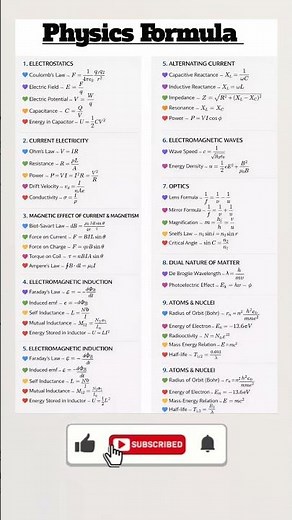 Physics Formula
1. ELECTROSTATICS
Coulomb's Law - F = 1/4πε₀ q₁q₂/r²
Electric Field - E = F/q
Electric Potential - V = W/q
Capacitance - C = Q/V
Energy in Capacitor - U = 1/2 CV²
2. CURRENT ELECTRICITY
Ohm's Law - V = IR
Resistance - R = ρL/A
Power - P = VI = I²R = V²/R
Drift Velocity - v_d = I/nAe
Conductivity - σ = 1/ρ
3. MAGNETIC EFFECT OF CURRENT & MAGNETISM
Force on Current - F = BIL sin θ
Force on Charge - F = qvB sin θ
Torque on Coil - τ = nBIA sin θ
Ampere's Law
4. ELECTROMAGNETIC INDUCTION
Faraday's Law
Induced emf
Self Inductance
Mutual Inductance
Energy Stored in Inductor
5. ELECTROMAGNETIC INDUCTION
Faraday's Law
Induced emf
Self Inductance
Mutual Inductance
Energy Stored in Inductor
5. ALTERNATING CURRENT
Capacitive Reactance - X_C = 1/ωC
Inductive Reactance - X_L = ωL
Impedance - Z = √R² + (X_L - X_C)²
Resonance - X_L = X_C
Power - P = VI cos ϕ
6. ELECTROMAGNETIC WAVES
Wave Speed
Energy Density
7. OPTICS
Lens Formula
Mirror Formula
Magnification
Snell's Law
Critical Angle
8. DUAL NATURE OF MATTER
De Broglie Wavelength - λ = h/mv
Photoelectric Effect
9. ATOMS & NUCLEI
Radius of Orbit (Bohr)
Energy of Electron
Radioactivity
Mass Energy Relation - E = mc²
Half-life
9. ATOMS & NUCLEI
Radius of Orbit (Bohr)
Energy of Electron
Mass-Energy Relation - E = mc²
Half-life
SUBSCRIBED